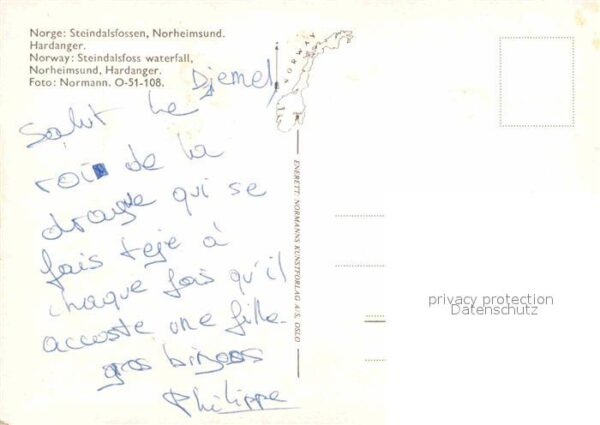 Norge: Steindalsfossen, Norheimsund.
Hardanger.
Norway: Steindalsfoss waterfall,
Norheimsund, Hardanger.
Foto: Normann. O-51-108.
NORWAY
Salut le Djemel
roi de la
drague qui se
fais teje à
chaque fois qu'il
accoste une fille.
gros bizoos
Philippe
ENERETT. NORMANNS KUNSTFORLAG A/S, OSLO
privacy protection
Datenschutz